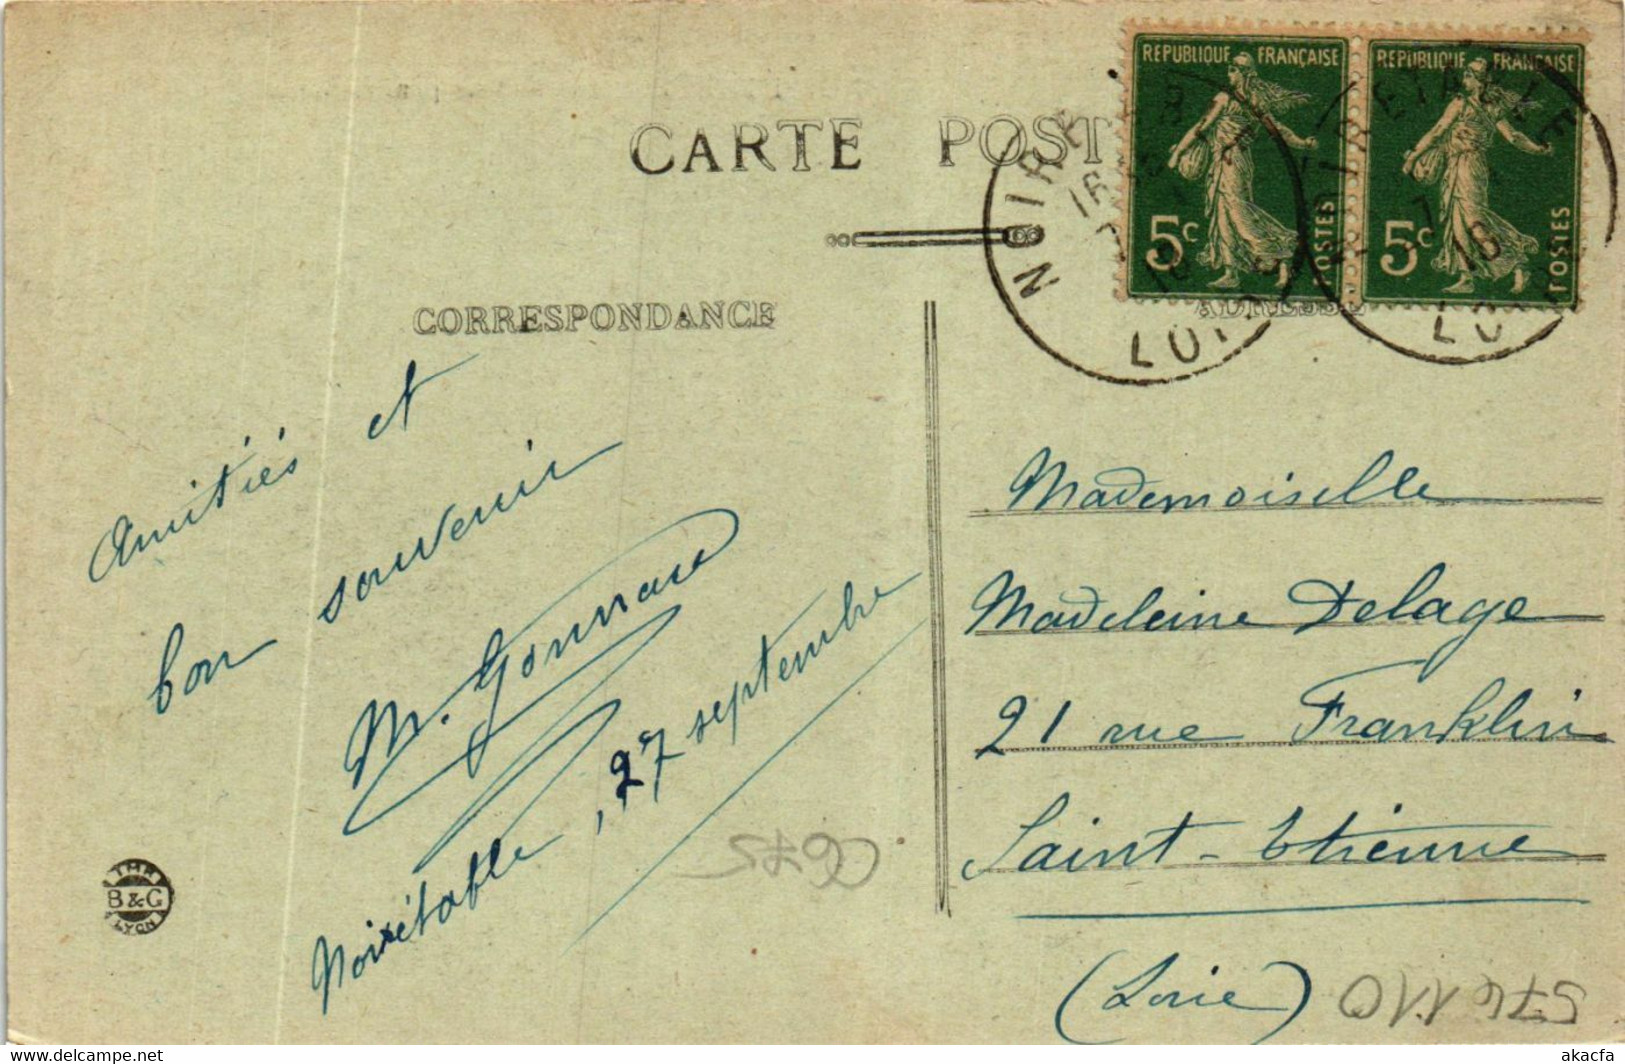 CARTE POST
CORRESPONDANCE
ADRESSE
REPUBLIQUE FRANÇAISE
5c
POSTES
REPUBLIQUE FRANÇAISE
5c
POSTES
NOIRÉTABLE
16
LOIRE
Amitiés et
bon souvenir
M. Gonnard
Noirétable, 27 septembre
Mademoiselle
Madeleine Delage
21 rue Franklin
Saint-Etienne
(Loire)
B & G
LYON
C675
574110
akacfa
www.delcampe.net